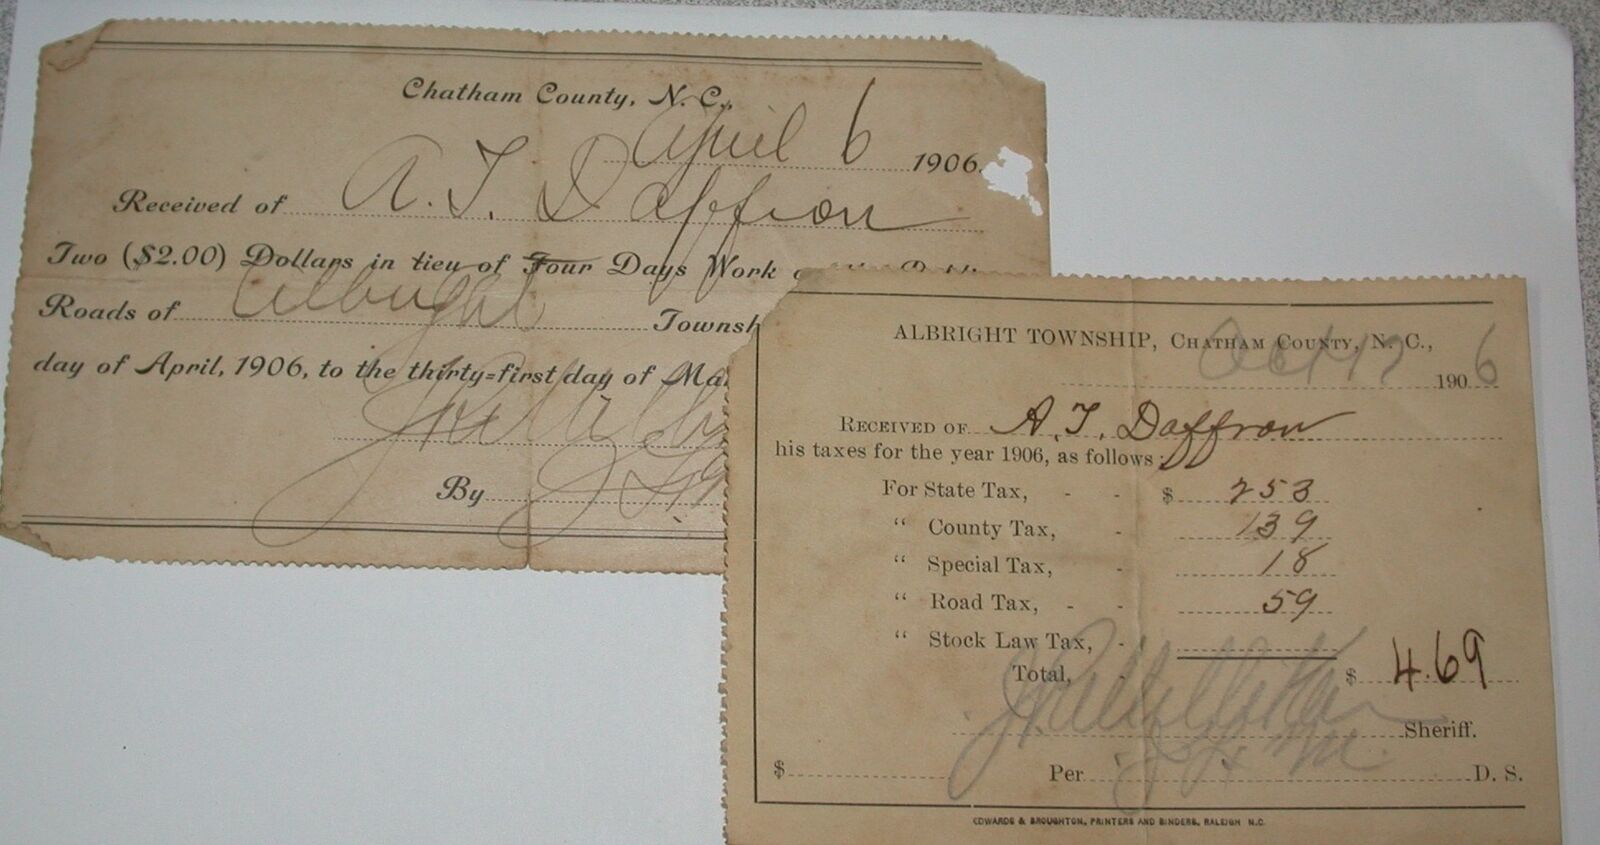 Chatham County, N. C.,
April 6 1906.
Received of A. T. Daffron
Two ($2.00) Dollars in lieu of Four Days Work
Roads of Albright Townsh
day of April, 1906, to the thirty=first day of Ma
By
ALBRIGHT TOWNSHIP, CHATHAM COUNTY, N. C.,
Oct 17 1906
RECEIVED OF A. T. Daffron
his taxes for the year 1906, as follows:
For State Tax, - - $ 253
" County Tax, - 139
" Special Tax, - 18
" Road Tax, - - 59
" Stock Law Tax, -
Total, - $ 4.69
Sheriff.
$ Per D. S.
EDWARDS & BROUGHTON, PRINTERS AND BINDERS, RALEIGH N.C.